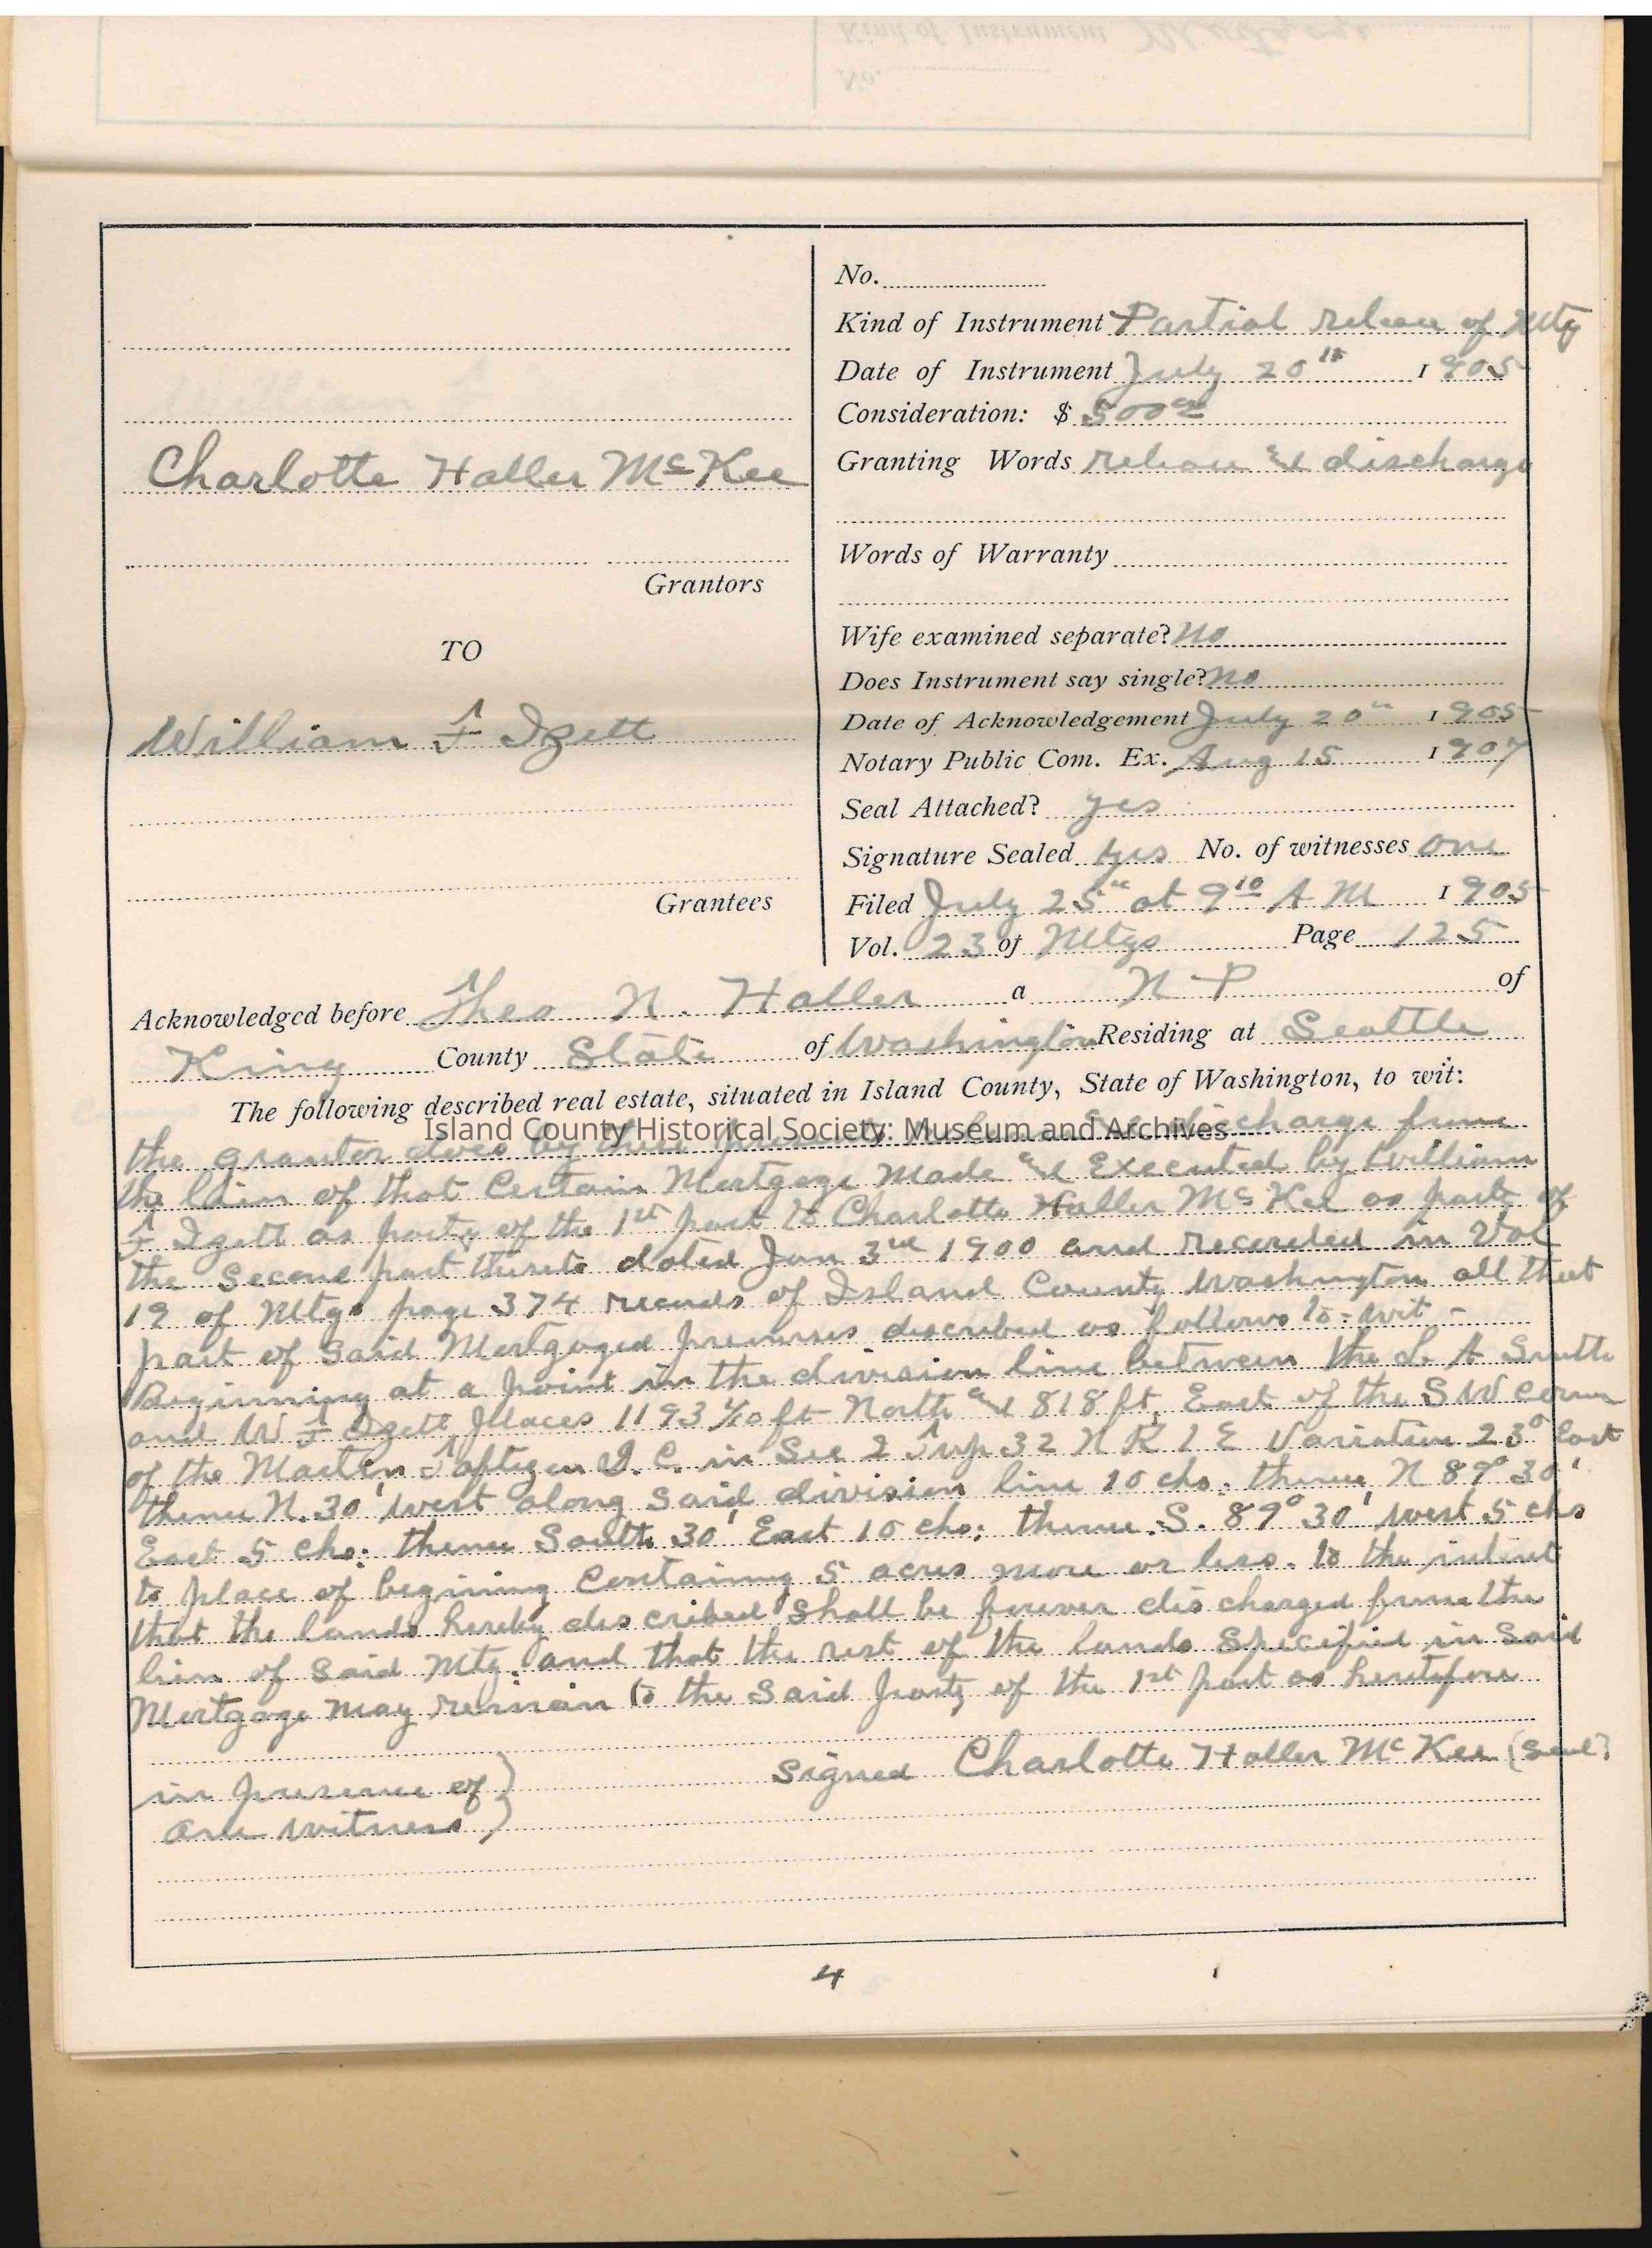 No.
Kind of Instrument Partial release of Mtg
Date of Instrument July 20th 1905
Consideration: $ 500 00
Charlotte Haller McKee
Granting Words release and discharge
Words of Warranty
Grantors
Wife examined separate? No
TO
Does Instrument say single? no
William F Izett
Date of Acknowledgement July 20th 1905
Notary Public Com. Ex. Aug 15 1907
Seal Attached? yes
Signature Sealed yes No. of witnesses one
Grantees
Filed July 25th at 9 10 A M 1905
Vol. 23 of Mtgs Page 125
Acknowledged before Theo N. Haller a N P of
King County State of Washington Residing at Seattle
The following described real estate, situated in Island County, State of Washington, to wit:
Island County Historical Society: Museum and Archives
the grantor does by these discharge from
the lien of that Certain Mortgage Made and Executed by William
F Izett as party of the 1st part to Charlotte Haller McKee as party of
the Second part thereto dated Jan 3rd 1900 and recorded in Vol
19 of Mtgs page 374 records of Island County Washington all that
part of Said Mortgaged premises described as follows to-wit -
Beginning at a point in the division line between the L. A Smith
and W F Izett Places 1193 ft North and 818 ft. East of the SW corner
of the Martin Taftezon D. C. in Sec 2 Twp 32 N R 1 E Variation 23° East
thence N. 30' west along Said division line 10 chs. thence N 89° 30'
East 5 chs. thence South 30' East 10 chs; thence S. 89° 30' west 5 chs
to place of begining Containing 5 acres more or less. to the intent
that the lands hereby described Shall be forever discharged from the
lien of Said Mtg. and that the rest of the lands Specified in Said
Mortgage may remain to the Said party of the 1st part as heretofore
Signed Charlotte Haller McKee (Seal)
in presence of
One witness
4